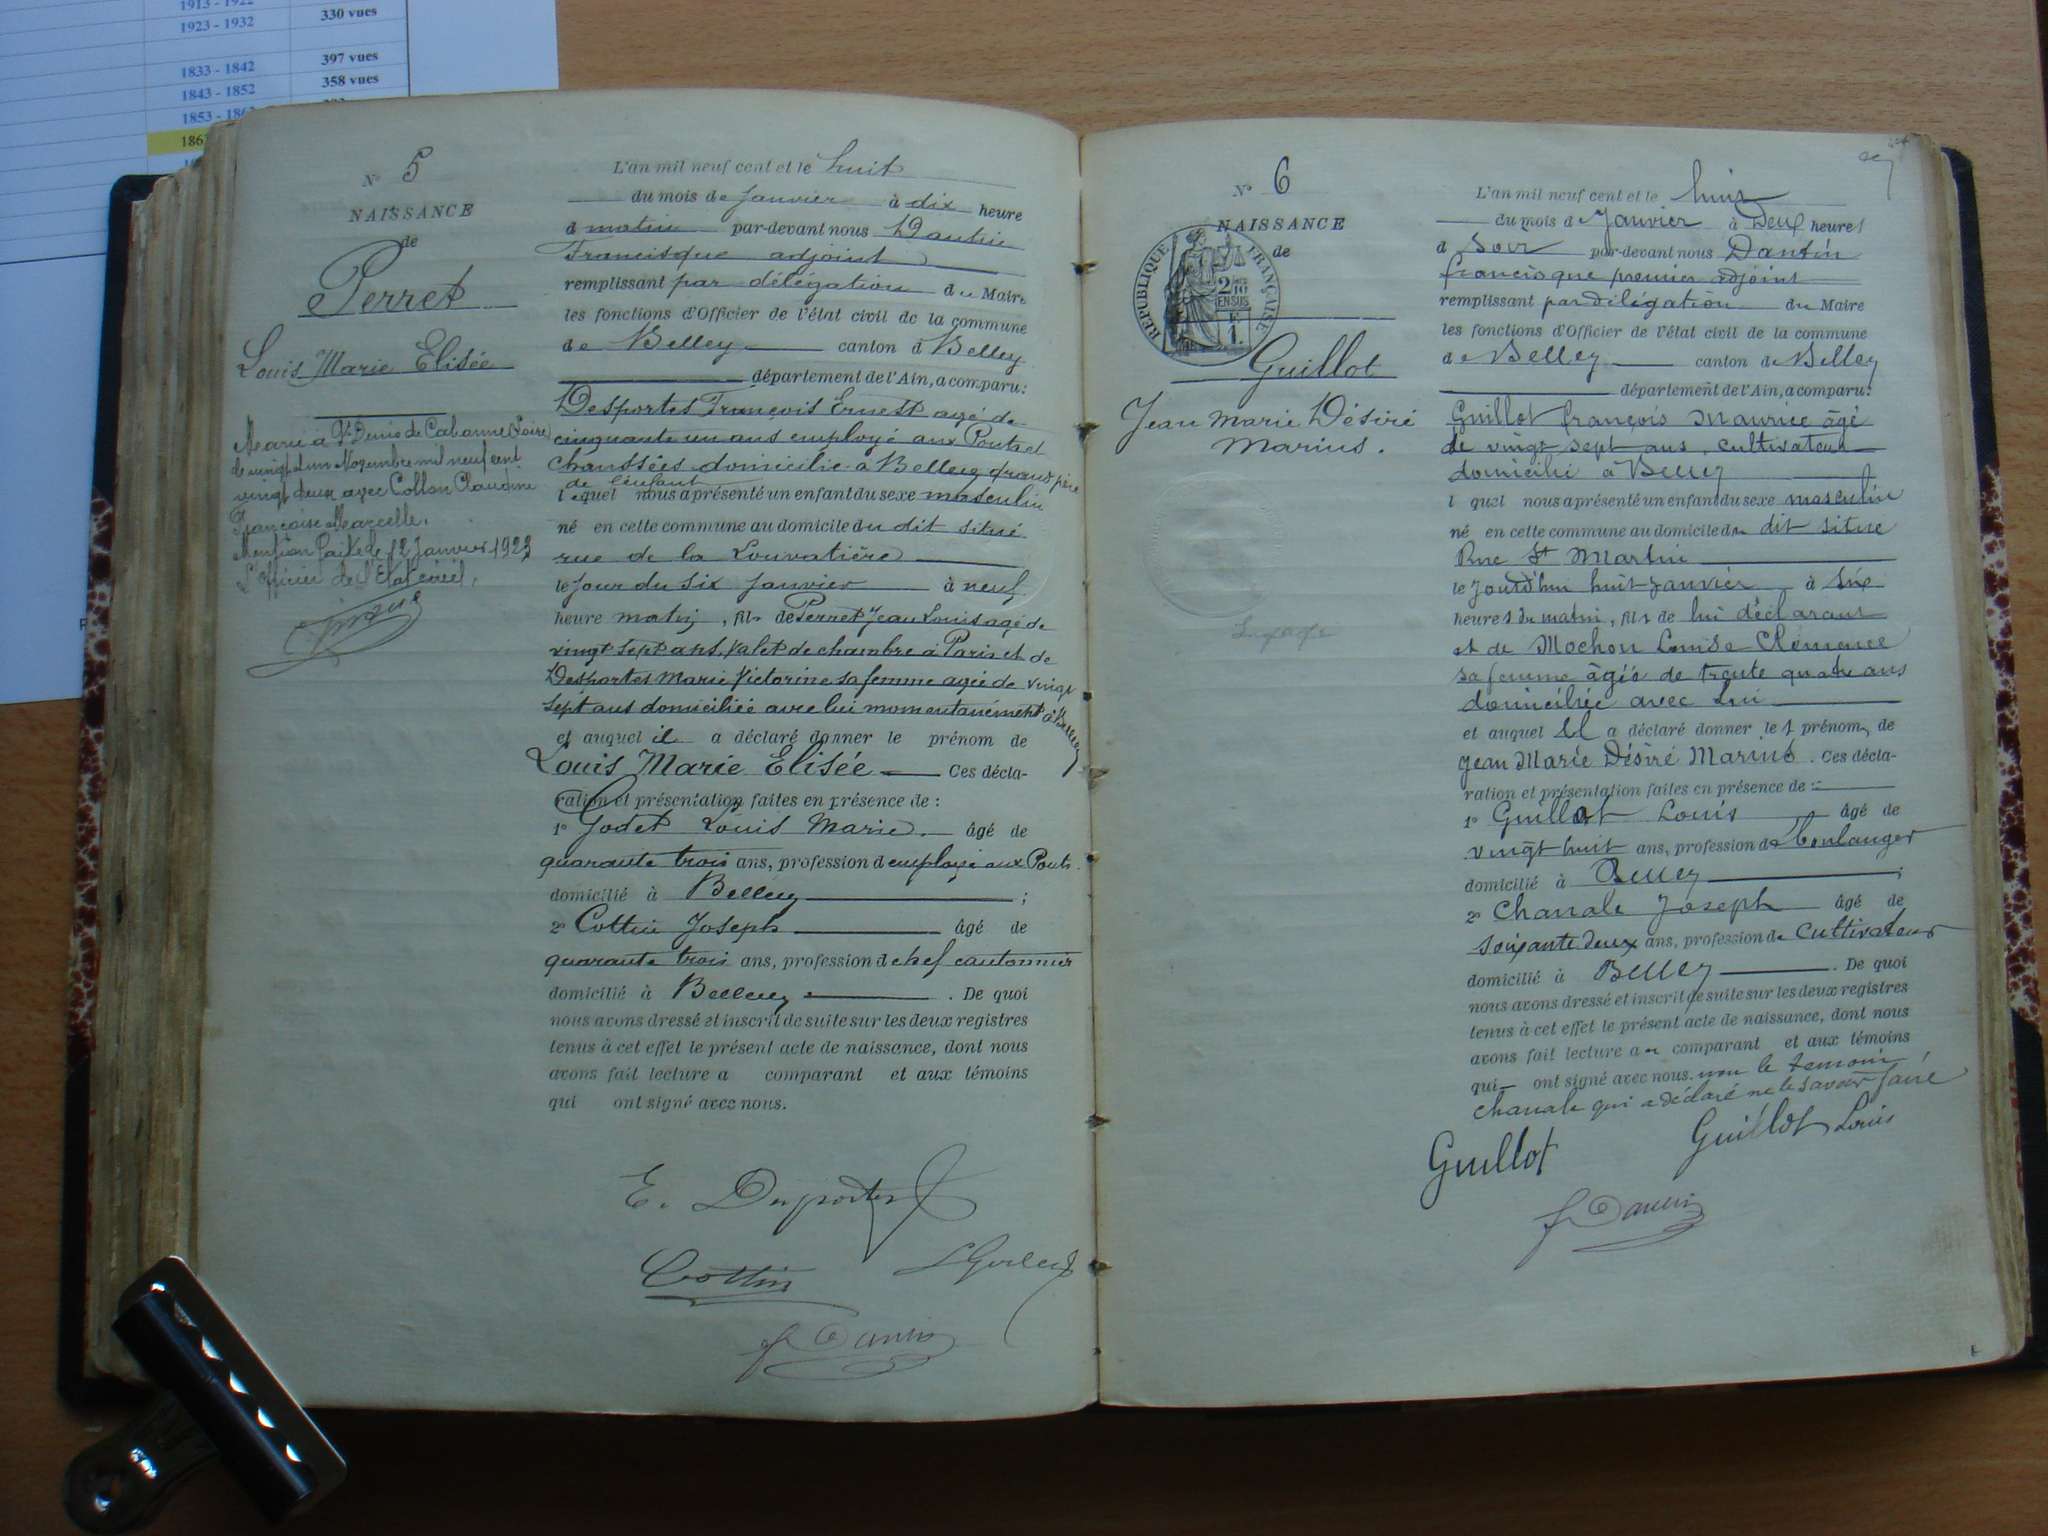 1913 - 1922
1923 - 1932 330 vues
1833 - 1842 397 vues
1843 - 1852 358 vues
1853 - 186
186
N° 5
NAISSANCE
de
Perret
Louis Marie Elisée
Marié à St Denis de Cabanne (Loire)
le vingt un Novembre mil neuf cent
vingt deux avec Collon Claudine
Françoise Marcelle.
Mention faite le 12 Janvier 1923
L'officier de l'Etat civil,
L'an mil neuf cent et le huit
du mois de Janvier à dix heure
d matin par-devant nous Dantin
Francisque adjoint
remplissant par délégation du Maire
les fonctions d'Officier de l'état civil de la commune
de Belley canton d Belley
département de l'Ain, a comparu:
Desportes François Ernest agé de
cinquante un ans employé aux Ponts et
Chaussées domicilié à Belley grand père
de l'enfant
lequel nous a présenté un enfant du sexe masculin
né en cette commune au domicile du dit situé
rue de la Louvatière
le jour du six Janvier à neuf
heure matin, fils de Perret Jean Louis agé de
vingt sept ans, valet de chambre à Paris et de
Desportes Marie Victorine sa femme agée de vingt
sept ans domiciliée avec lui momentanément à Belley
et auquel il a déclaré donner le prénom de
Louis Marie Elisée Ces décla-
ration et présentation faites en présence de :
1° Godet Louis Marie âgé de
quarante trois ans, profession d employé aux Ponts
domicilié à Belley ;
2° Cottin Joseph âgé de
quarante trois ans, profession d chef cantonnier
domicilié à Belley . De quoi
nous avons dressé et inscrit de suite sur les deux registres
tenus à cet effet le présent acte de naissance, dont nous
avons fait lecture a comparant et aux témoins
qui ont signé avec nous.
E. Desportes
Cottin LGodet
f Dantin
N° 6
NAISSANCE
de
RÉPUBLIQUE FRANÇAISE
2/10
EN SUS
1
Guillot
Jean Marie Désiré
Marius.
L'an mil neuf cent et le huit
du mois d Janvier à Deux heures
d soir par-devant nous Dantin
francisque premier adjoint
remplissant par délégation du Maire
les fonctions d'Officier de l'état civil de la commune
de Belley canton de Belley
département de l'Ain, a comparu:
Guillot françois Maurice âgé
de vingt sept ans, cultivateur
domicilié à Belley
l quel nous a présenté un enfant du sexe masculin
né en cette commune au domicile du dit situé
Rue St Martin
le jourd'hui huit janvier à six
heures du matin, fils de lui déclarant
et de Mochon Louise Clémence
sa femme âgée de trente quatre ans
domiciliée avec lui
et auquel il a déclaré donner les prénoms de
Jean Marie Désiré Marius. Ces décla-
ration et présentation faites en présence de :
1° Guillot Louis âgé de
vingt huit ans, profession de boulanger
domicilié à Belley ;
2° Chanale Joseph âgé de
soixante deux ans, profession de cultivateur
domicilié à Belley . De quoi
nous avons dressé et inscrit de suite sur les deux registres
tenus à cet effet le présent acte de naissance, dont nous
avons fait lecture au comparant et aux témoins
qui ont signé avec nous. non le temoin
Chanale qui a déclaré ne le savoir faire
Guillot Guillot Louis
f Dantin